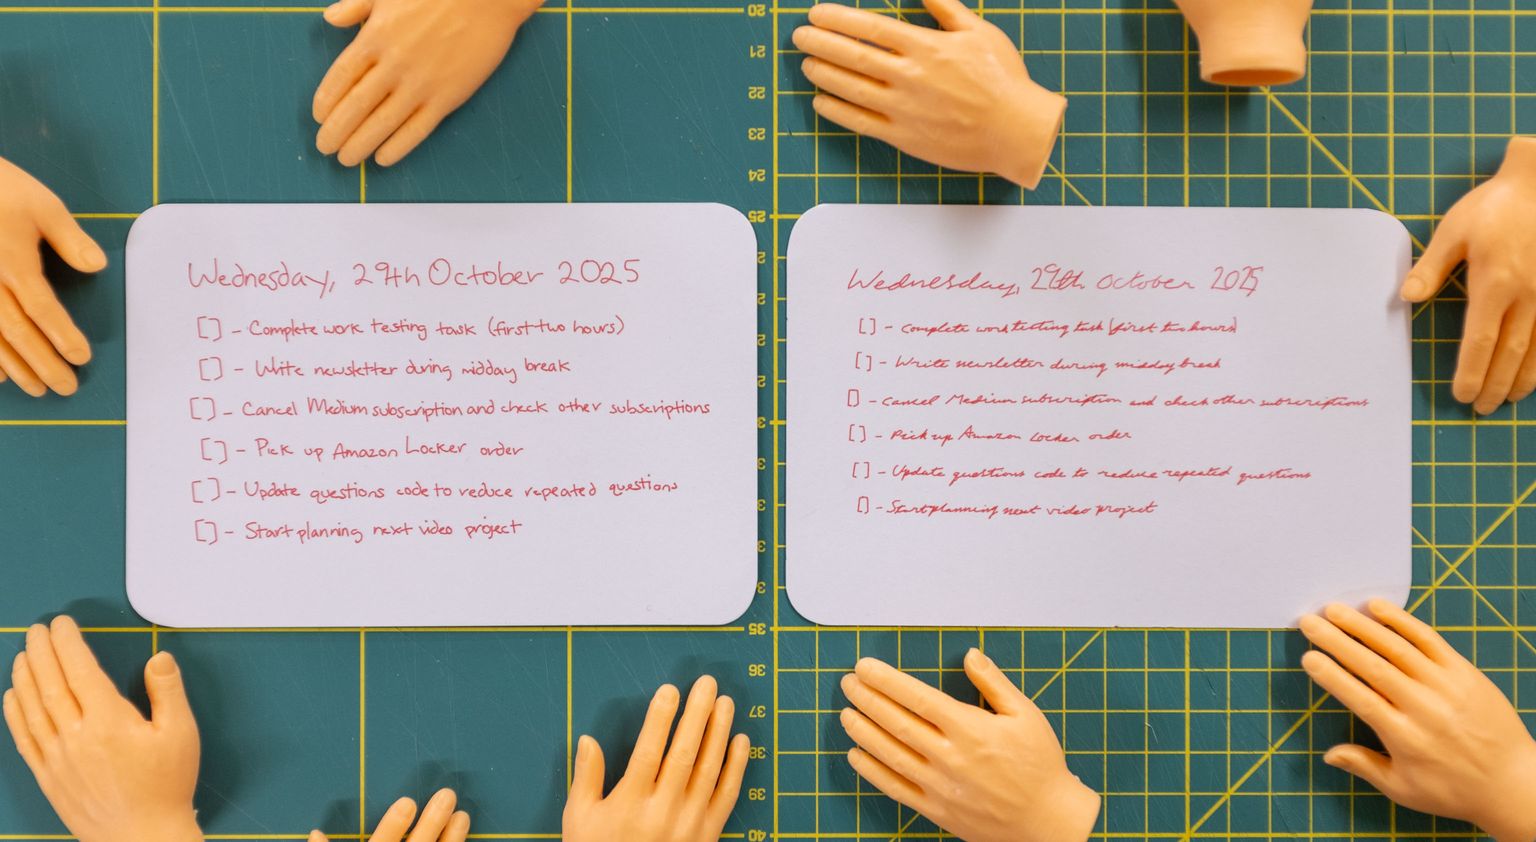 Wednesday, 29th October 2025
[] - Complete work testing task (first two hours)
[] - Write newsletter during midday break
[] - Cancel Medium subscription and check other subscriptions
[] - Pick up Amazon Locker order
[] - Update questions code to reduce repeated questions
[] - Start planning next video project
Wednesday, 29th October 2025
[] - Complete work testing task (first two hours)
[] - Write newsletter during midday break
[] - Cancel Medium subscription and check other subscriptions
[] - Pick up Amazon Locker order
[] - Update questions code to reduce repeated questions
[] - Start planning next video project
20
21
22
23
24
25
2
2
2
2
3
3
3
3
3
35
36
37
38
39
40